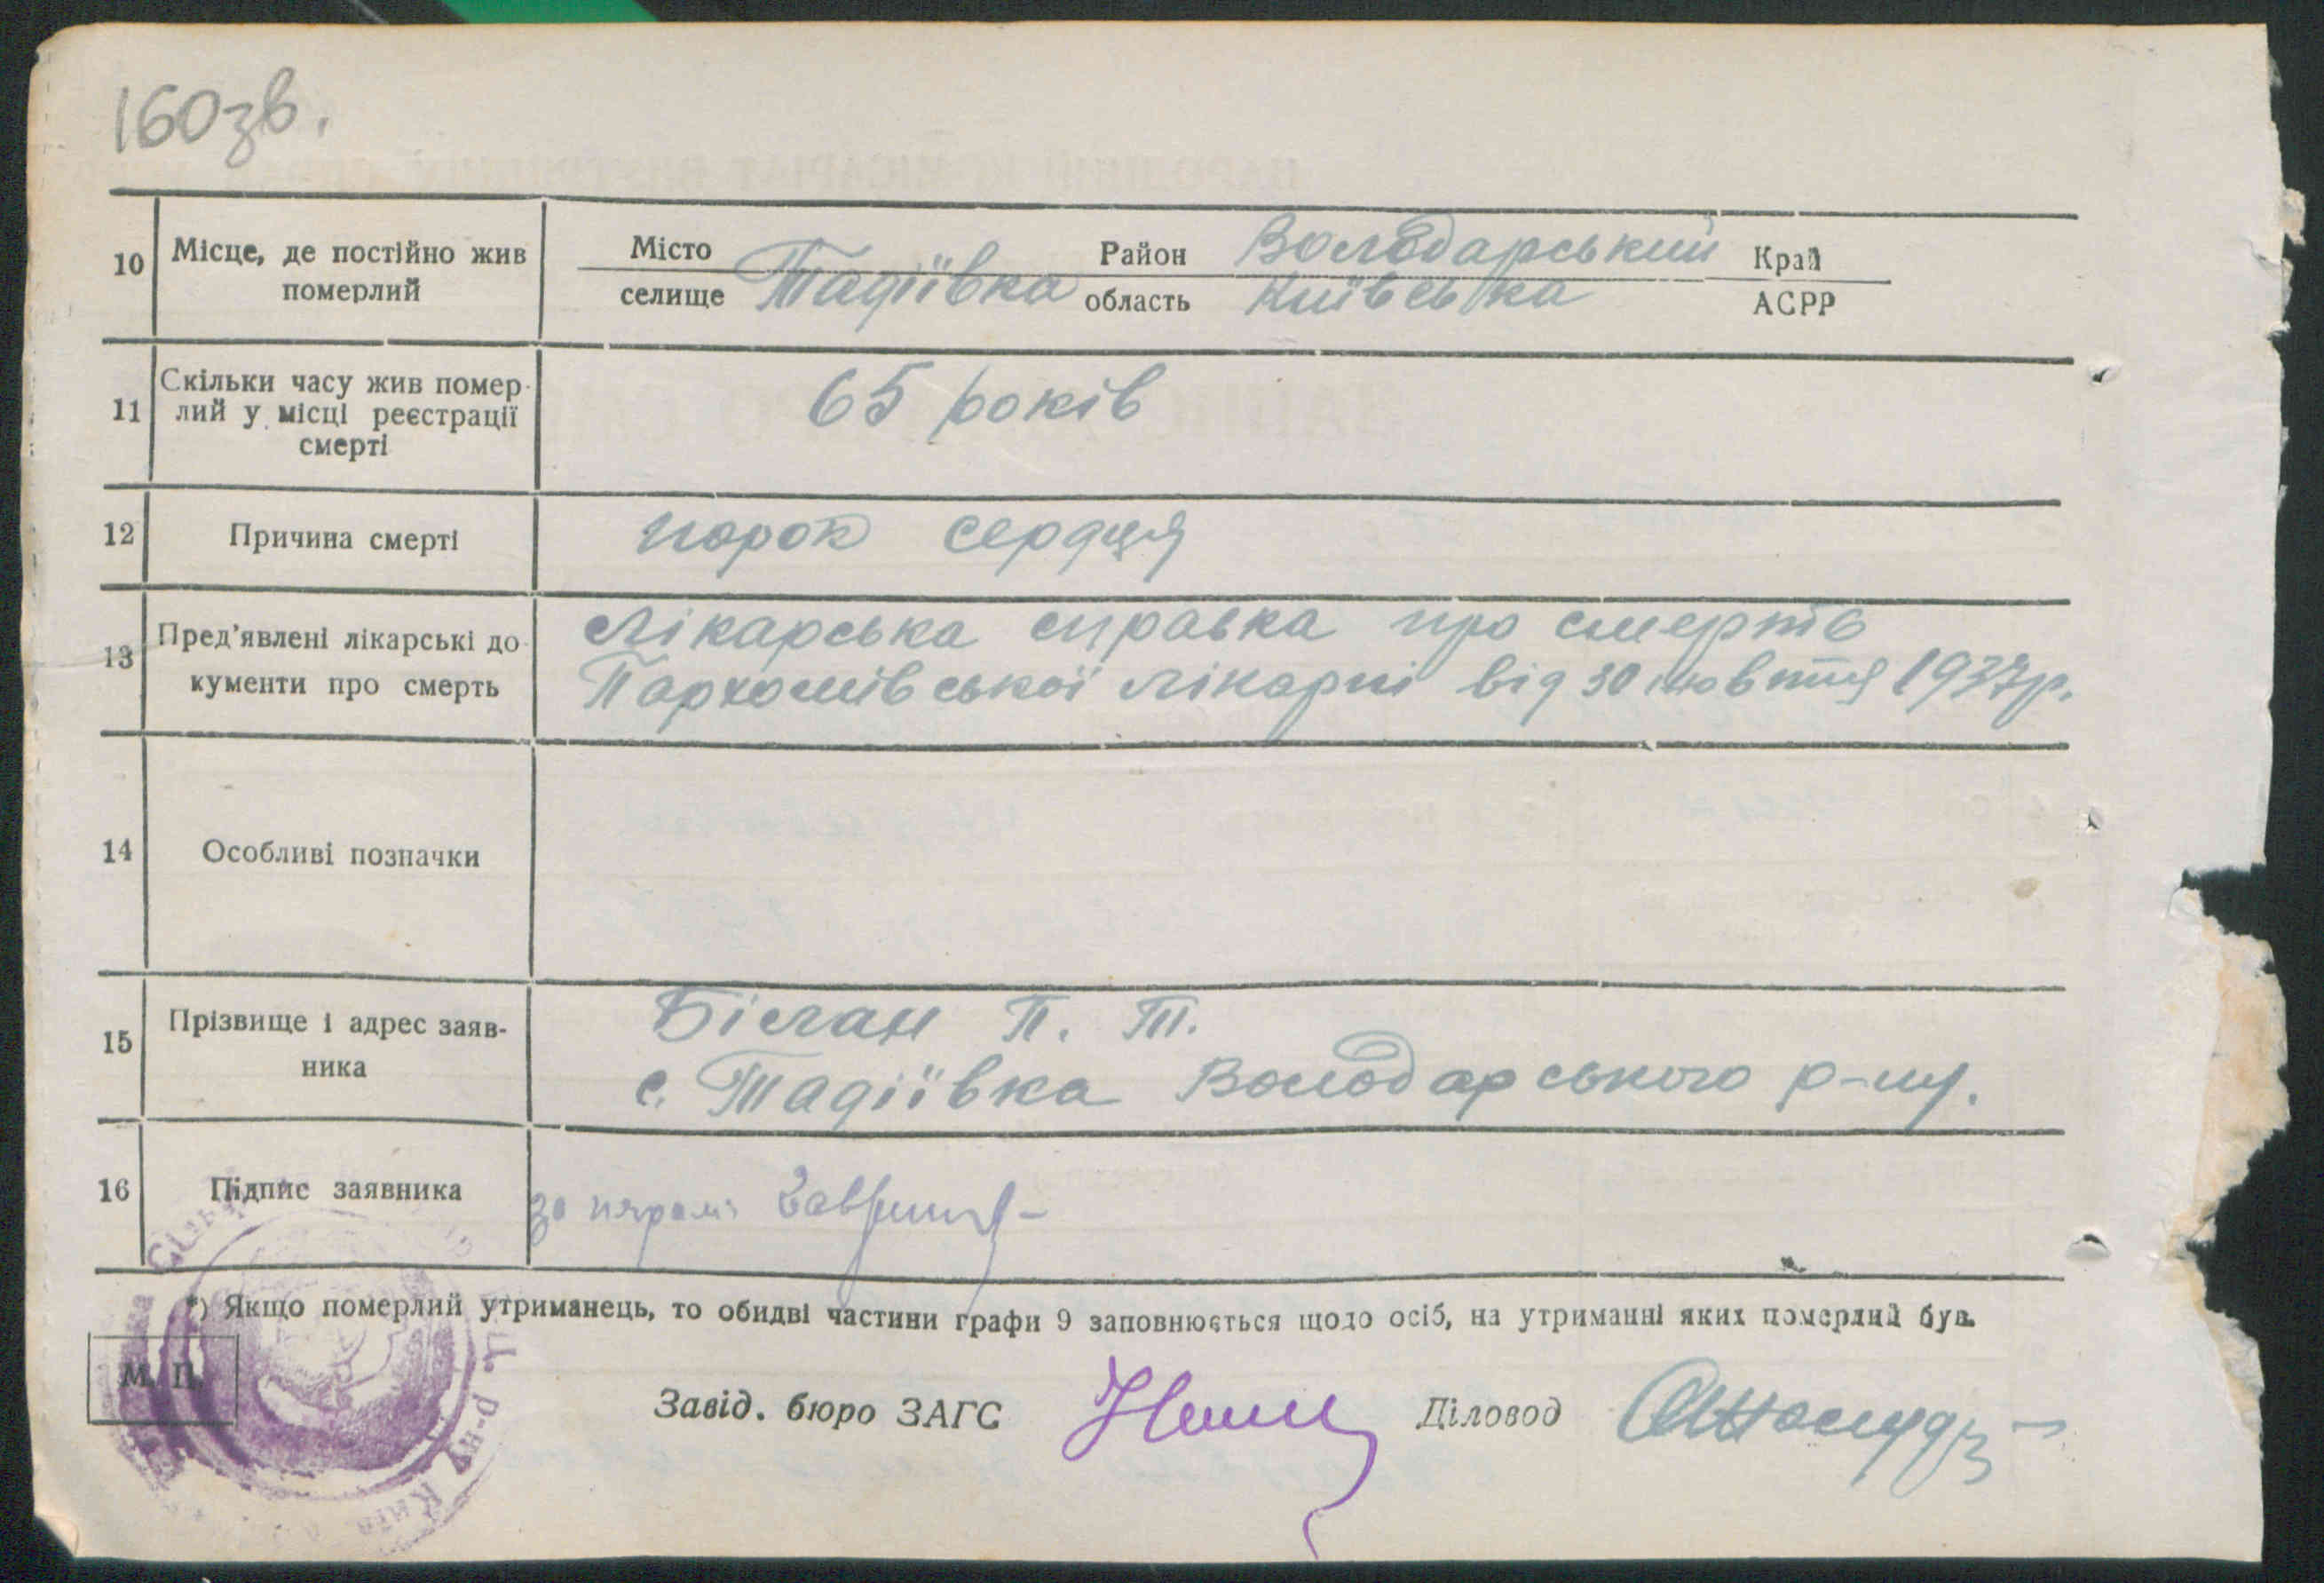 160зв.
10 Місце, де постійно жив померлий
Місто селище Тадіївка Район Володарський область Київська Край АСРР
11 Скільки часу жив помер-
лий у місці реєстрації
смерті
65 років
12 Причина смерті порок сердця
13 Пред'явлені лікарські до-
кументи про смерть
Лікарська справка про смерть
Пархомівської лікарні від 30 жовтня 1937р.
14 Особливі позначки
15 Прізвище і адрес заяв-
ника
Біслан П. Т.
с. Тадіївка Володарського р-ну.
16 Підпис заявника
*) Якщо померлий утриманець, то обидві частини графи 9 заповнюється щодо осіб, на утриманні яких померлий був.
М. П.
Завід. бюро ЗАГС Діловод
р-ну Київ